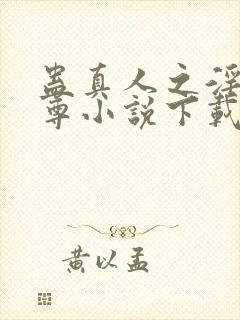 蛊真人之淫
尊小説下載
黄以孟